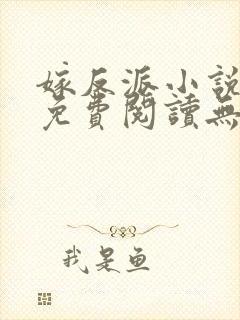 嫁反派小說
免費閱讀無
我是鱼